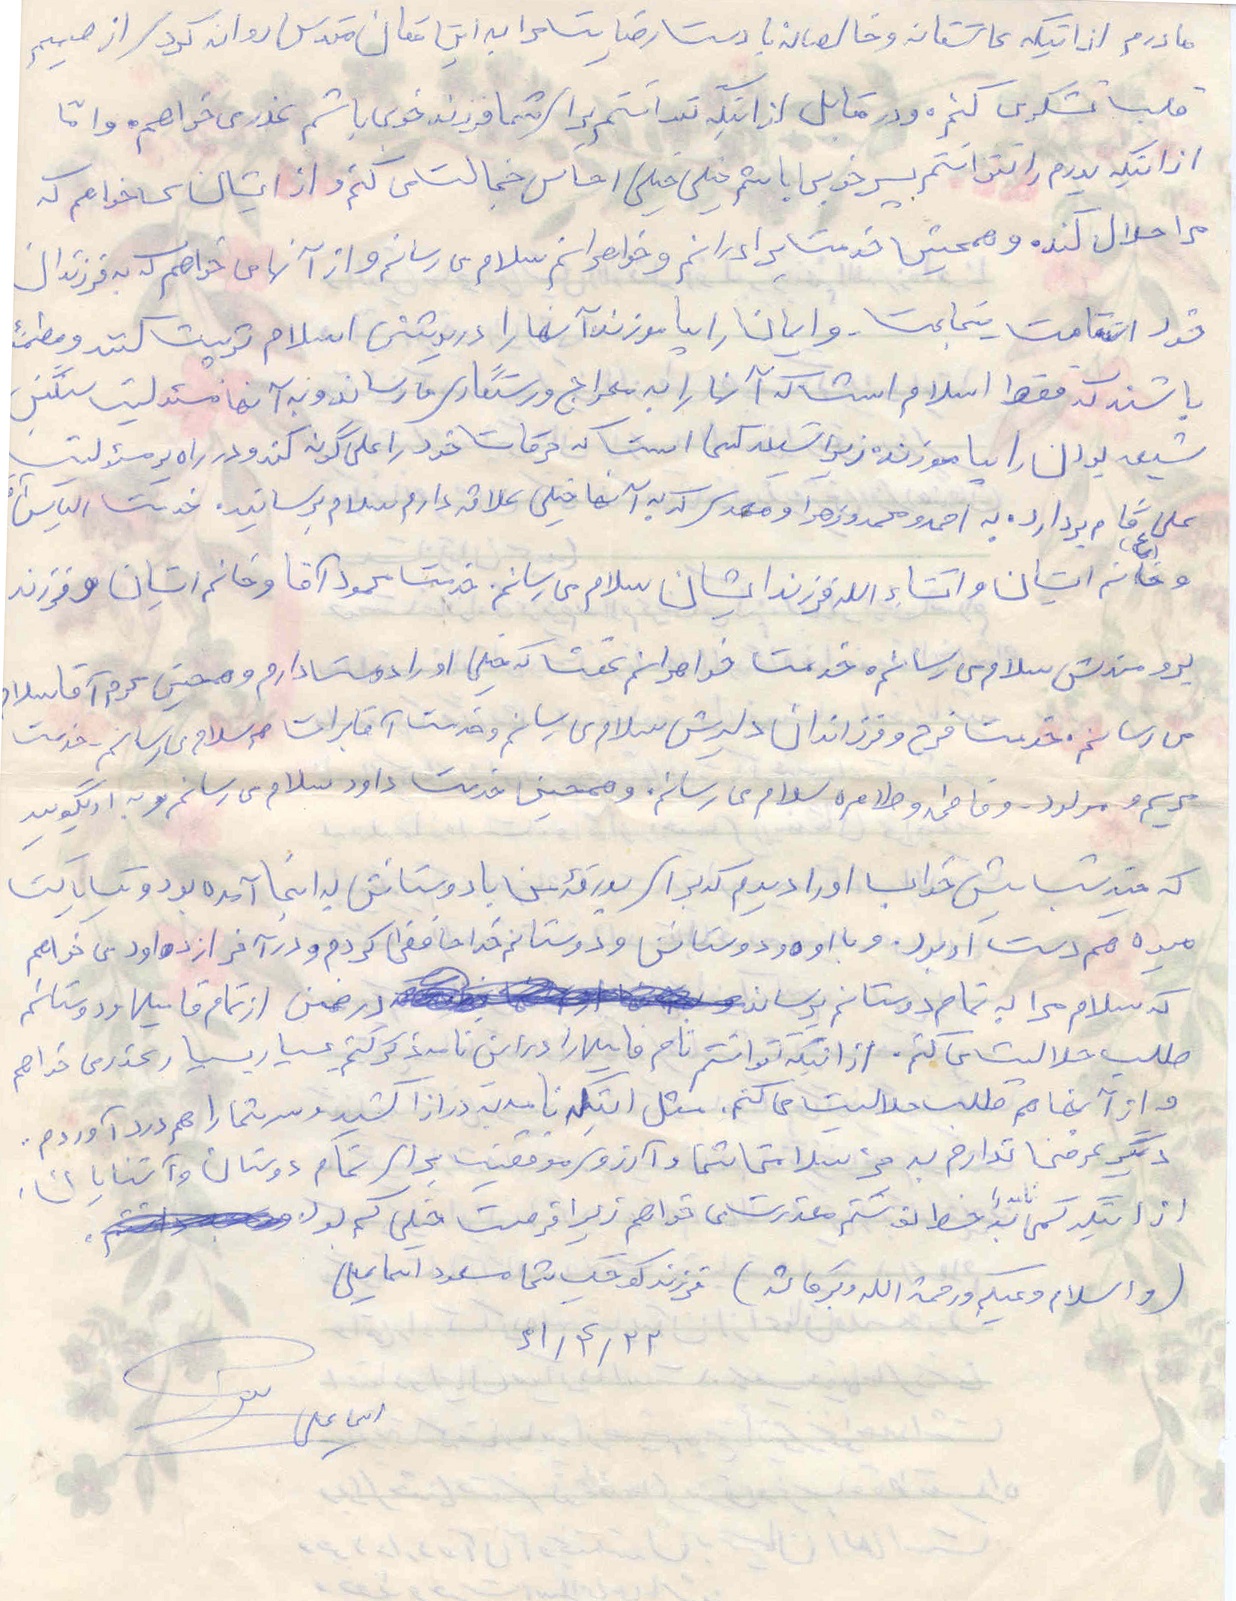 مادرم از اینکه عاشقانه و خالصانه با دست رضایت مرا به این مکان مقدس روانه کردی از صمیم
قلب تشکر می کنم. و در مقابل از اینکه نتوانستم برای شما فرزند خوبی باشم عذر می خواهم. و اما
از اینکه پدرم را نتوانستم پسر خوبی باشم خیلی خیلی احساس خجالت می کنم و از ایشان می خواهم که
مرا حلال کند. و همچنین خدمت برادرانم و خواهرانم سلام می رسانم و از آنها می خواهم که به فرزندان
خود استقامت شجاعت و ایمان را بیاموزند آنها را در پوشش اسلام تربیت کنند و مطمئن
باشند که فقط اسلام است که آنها را به معراج و رستگاری می رساند و به آنها مسئولیت سنگین
شیعه بودن را بیاموزند. زیرا شیعه کسی است که حرکات خود را علی گونه کند و در راه پر مسئولیت
علی (ع) گام بردارد. به احمد و محمد و زهرا و مهدی که به آنها خیلی علاقه دارم سلام برسانید. خدمت الیاس آقا
و خانم ایشان و انشاء الله فرزند ایشان سلام می رسانم. خدمت محمود آقا و خانم ایشان و فرزند
برومندش سلام می رسانم. خدمت خواهرانم عفت که خیلی او را دوست دارم و همچنین محرم آقا سلام
می رسانم. خدمت فرح و فرزندان دلیرش سلام می رسانم و خدمت آقا برات هم سلام می رسانم. خدمت
مریم و مولود و فاطمه و طاهره سلام می رسانم. و همچنین خدمت داود سلام می رسانم و به او بگویید
که چند شب پیش خواب او را دیدم که برای بدرقه من با دوستانش به اینجا آمده بود و یک پاکت
میوه هم دست او بود. و با او و دوستانش و دوستانم خداحافظی کردم و در آخر از داود می خواهم
که سلام مرا به تمام دوستانم برساند در ضمن از تمام فامیلها و دوستانم
طلب حلالیت می کنم. از اینکه نتوانستم نام فامیلها را در این نامه ذکر کنم بسیار بسیار عذر می خواهم
و از آنها هم طلب حلالیت می کنم. مثل اینکه نامه به درازا کشید و سر شما را هم درد آوردم.
دیگر عرضی ندارم به جز سلامتی شما و آرزوی موفقیت برای تمام دوستان و آشنایان.
از اینکه کمی بد خط نوشتم معذرت می خواهم زیرا فرصت خیلی کم بود.
(و اسلام و علیکم و رحمة الله و برکاته) فرزند کوچک شما مسعود اسماعیلی
۶۱/۴/۲۲
مسعود
اسماعیلی